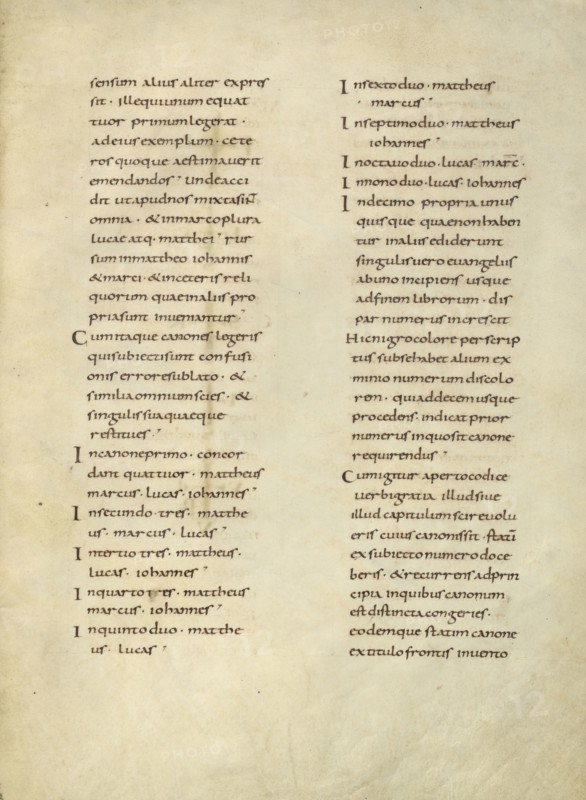 sensum alius aliter expres
sit · ille qui unum e quat
tuor primum legerat ·
ad eius exemplum · cete
ros quoque aestimaverit
emendandos · unde acci
dit ut apud nos mixta sint
omnia · & in marco plura
lucae atq · matthei · rur
sum in mattheo iohannis
& marci · & in ceteris reli
quorum quae in aliis pro
pria sunt inveniantur ·
Cum itaque canones legeris
qui subiecti sunt confusi
onis errore sublato · &
similia omnium scies · &
singulis sua quaeque
restitues ·
In canone primo · concor
dant quattuor · mattheus
marcus · lucas · iohannes ·
In secundo · tres · matthe
us · marcus · lucas ·
In tertio tres · mattheus ·
lucas · iohannes ·
In quarto tres · mattheus
marcus · iohannes ·
In quinto duo · matthe
us · lucas ·
In sexto duo · mattheus
· marcus ·
In septimo duo · mattheus
iohannes ·
In octavo duo · lucas marc̄ ·
In nono duo · lucas · iohannes
In decimo propria unus
quisque quae non haben
tur in aliis ediderunt
singulis vero evangeliis
ab uno incipiens usque
ad finem librorum · dis
par numerus increscit
Hic nigro colore perscrip
tus sub se habet alium ex
minio numerum discolo
rem · qui ad decem usque
procedens · indicat prior
numerus in quo sit canone
requirendus ·
Cum igitur aperto codice
verbi gratia illud sive
illud capitulum scire volu
eris cuius canonis sit · statī
ex subiecto numero doce
beris · & recurrens ad prin
cipia in quibus canonum
est distincta congeries ·
eodemque statim canone
ex titulo frontis invento